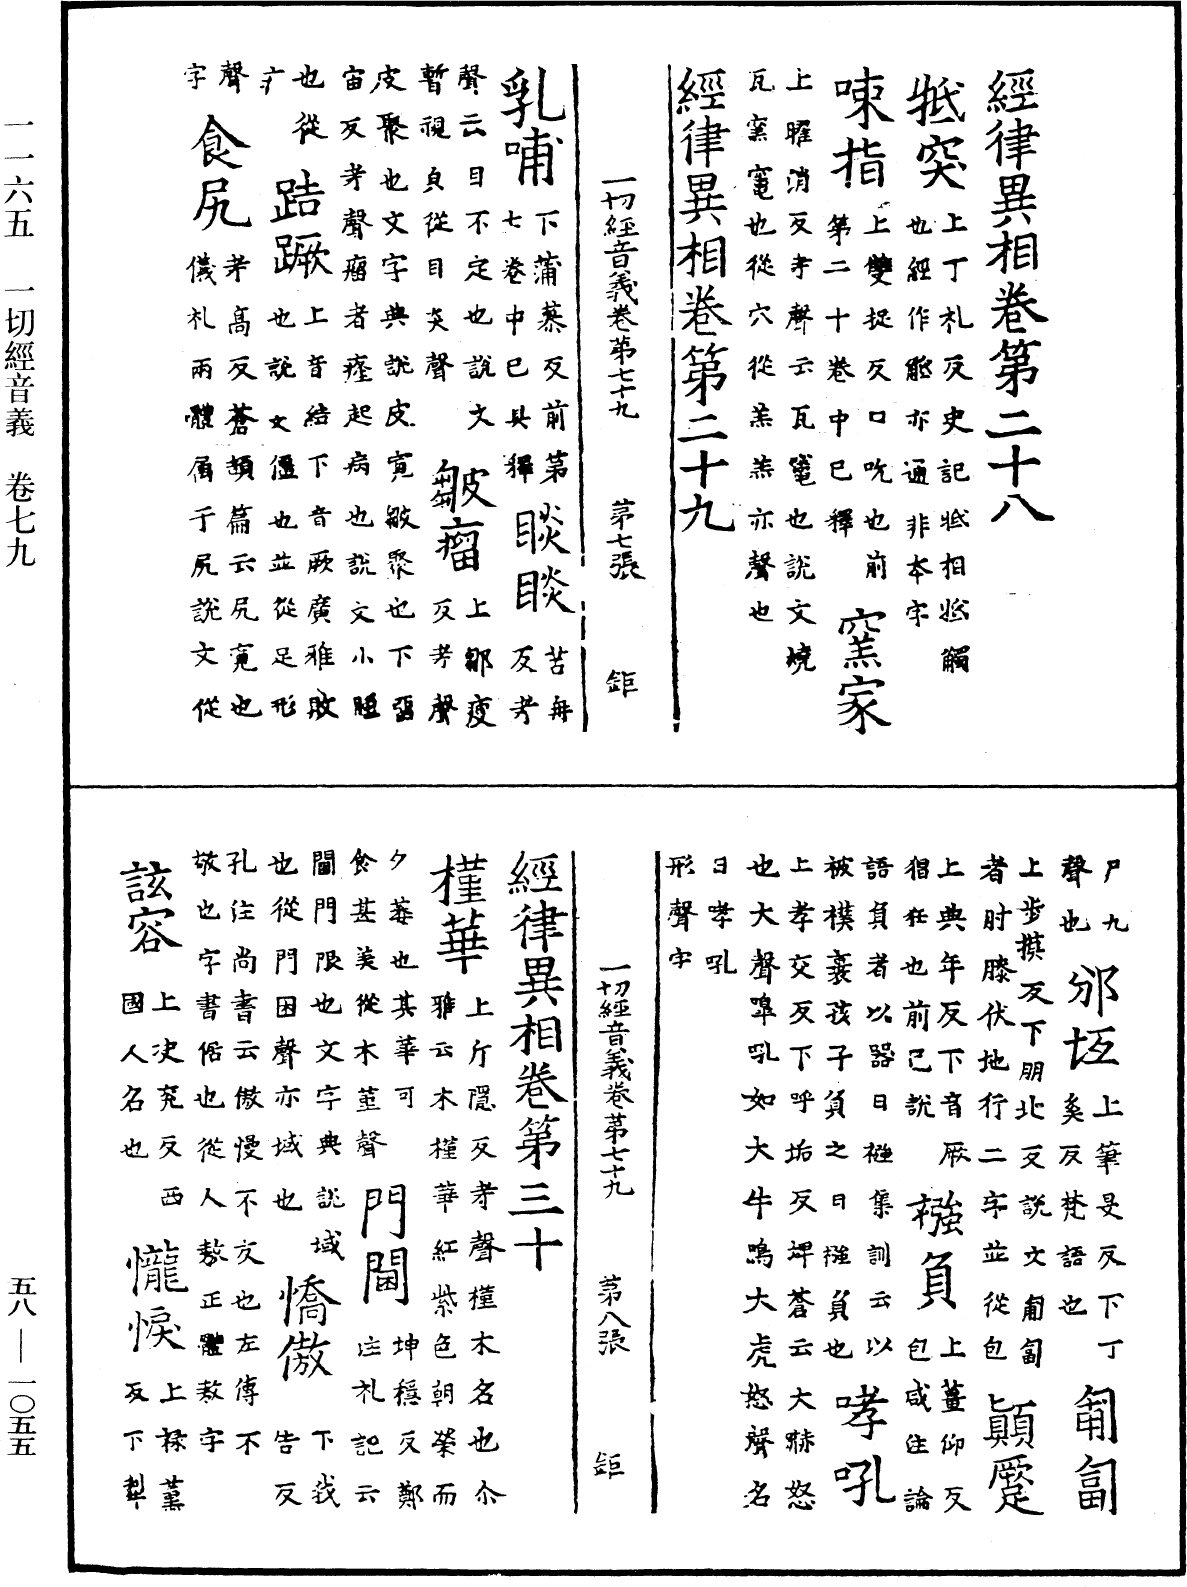 經律異相卷第二十八
牴突 上丁礼反史記牴相牴觸
也經作觝亦通非本字
㖩指 上雙捉反口吮也前
第二十卷中已釋
窯家
上曜消反考聲云瓦窯也說文燒
瓦窯竃也從穴從羔羔亦聲也
經律異相卷第二十九
一切經音義卷第七十九 第七張 鉅
乳哺 下蒲慕反前第
七卷中已具釋
睒睒 苦冉
反考
聲云目不定也說文
暫視皃從目炎聲
皺瘤 上鄒瘦
反考聲
皮聚也文字典說皮寬皺聚也下
宙反考聲瘤者瘇起病也說文小腫
也從
疒
踣蹶 上音結下音厥廣雅敗
也說文僵也並從足形
聲
字
食尻 考高反蒼頡篇云尻寬也
儀礼兩體屬于尻說文從
尸九
聲也
邠坻 上筆旻反下丁
奚反梵語也
匍匐
上步摸反下朋北反說文匍匐
者肘膝伏地行二字並從包
顛蹷
上典年反下音厥
猖狂也前已說
襁負 上薑仰反
包咸注論
語負者以器曰襁集訓云以
被樸裹孩子負之曰襁負也
哮吼
上孝交反下呼垢反埤蒼云大𧧻怒
也大聲嘷吼如大牛鳴大虎怒聲名
曰哮吼
形聲字
一切經音義卷第七十九 第八張 鉅
經律異相卷第三十
槿華 上斤隱反考聲槿木名也尒
雅云木槿華紅紫色朝榮而
夕萎也其華可
食甚美從木堇聲
門閫 坤穩反鄭
注礼記云
閫門限也文字典說域
也從門困聲亦域也
憍傲 下我
告反
孔注尚書云傲慢不友也左傳不
敬也字書倨也從人敖正體敖字
該容 上決兖反西
國人名也
㦕悷 上祿董
反下犂
一一六五 一切經音義 卷七九
五八—一〇五五